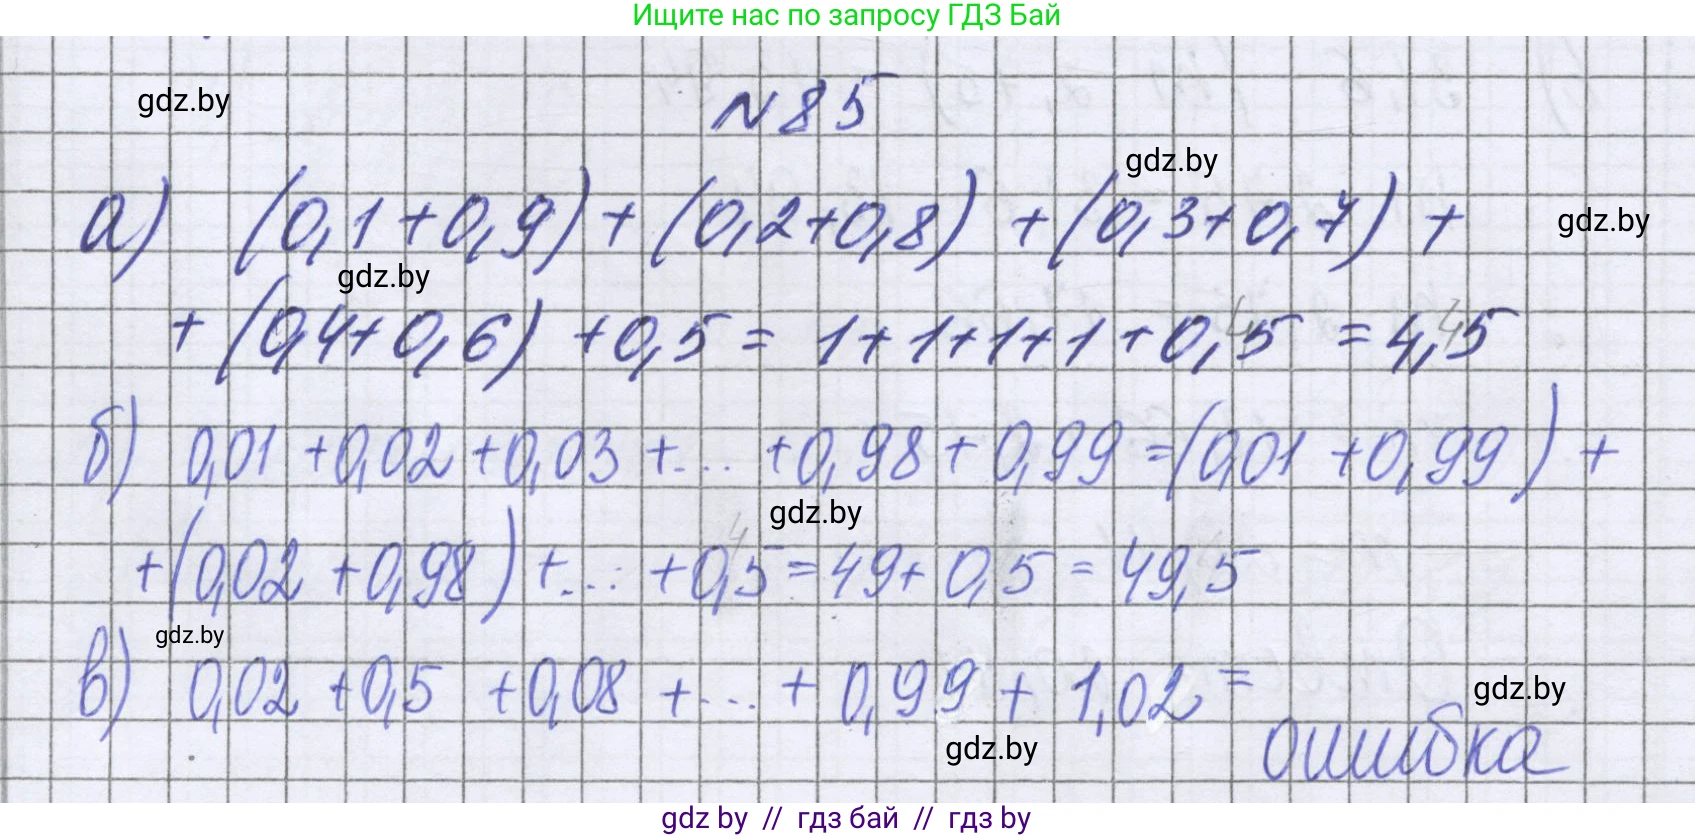 Ищите нас по запросу ГДЗ Бай
№85
gdz.by
gdz.by
а) (0,1+0,9)+(0,2+0,8)+(0,3+0,7)+
gdz.by
gdz.by
+(0,4+0,6)+0,5=1+1+1+1+0,5=4,5
б) 0,01+0,02+0,03+...+0,98+0,99=(0,01+0,99)+
gdz.by
+(0,02+0,98)+...+0,5=49+0,5=49,5
gdz.by
в) 0,02+0,5+0,08+...+0,99+1,02=
gdz.by
gdz.by
ошибка
gdz by // гдз бай // гдз by